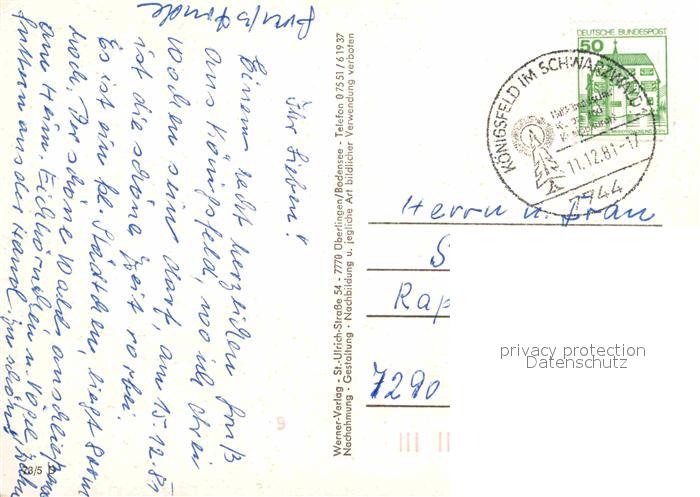 Ihr Lieben!
Einen recht herzlichen Gruß
aus Königsfeld, wo ich drei
Wochen sein darf, am 15.12.81
ist die schöne Zeit vorbei.
Es ist ein kl. Städtchen, liegt 800m
hoch. Der schöne Wald anschließend
am Heim. Eichhörnchen u. Vögel
futtern aus der Hand.
Werner-Verlag - St.-Ulrich-Straße 54 - 7770 Überlingen/Bodensee - Telefon 07551/61937
Nachahmung · Gestaltung · Nachbildung u. jegliche Art bildlicher Verwendung verboten
DEUTSCHE BUNDESPOST
50
KÖNIGSFELD IM SCHWARZWALD 1
11.12.81-17
7744
Herrn u. Frau
S
Rap
7290
privacy protection
Datenschutz
9